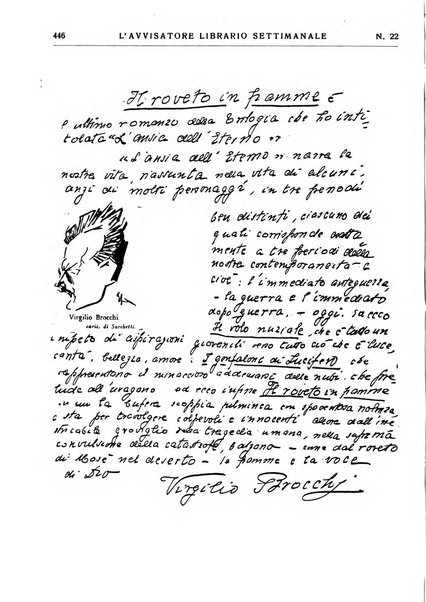 446
L'AVVISATORE LIBRARIO SETTIMANALE
N. 22
Il roveto in fiamme è
l'ultimo romanzo della trilogia che ho inti
tolata "L'ansia dell'Eterno"
"L'ansia dell'Eterno" narra la
nostra vita, riassunta nella vita di alcuni,
anzi di molti personaggi, in tre periodi
ben distinti, ciascuno dei
quali corrisponde esatta
mente a tre periodi della
nostra contemporaneità e
cioè: l'immediato anteguerra
- la guerra e l'immediato
dopo guerra -
Il volo nuziale che è tutto un
impeto di aspirazioni giovenili verso tutto ciò che è luce
bellezza, amore: I gonfaloni di Lucifero che
rappresentano il minaccioso addensarsi delle nubi che pre
lude all'uragano ed ecco infine Il roveto in fiamme
in cui la bufera scoppia fulminea con spaventosa
sta per travolgere colpevoli e innocenti allora dall'ine
stricabile groviglio della tragedia umana, nella suprema
convulsione della catastrofe, balzano - come dal roveto
di Mosè nel deserto - la fiamma e la voce
di Dio
Virgilio Brocchi
Virgilio Brocchi
caric. di Sacchetti.